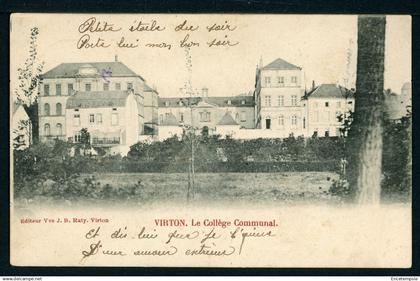 Petite étoile du soir
Porte lui mon bon soir
Editeur Vve J. B. Raty. Virton
VIRTON. Le Collège Communal.
Et dis lui que je l'aime
D'un amour extrême